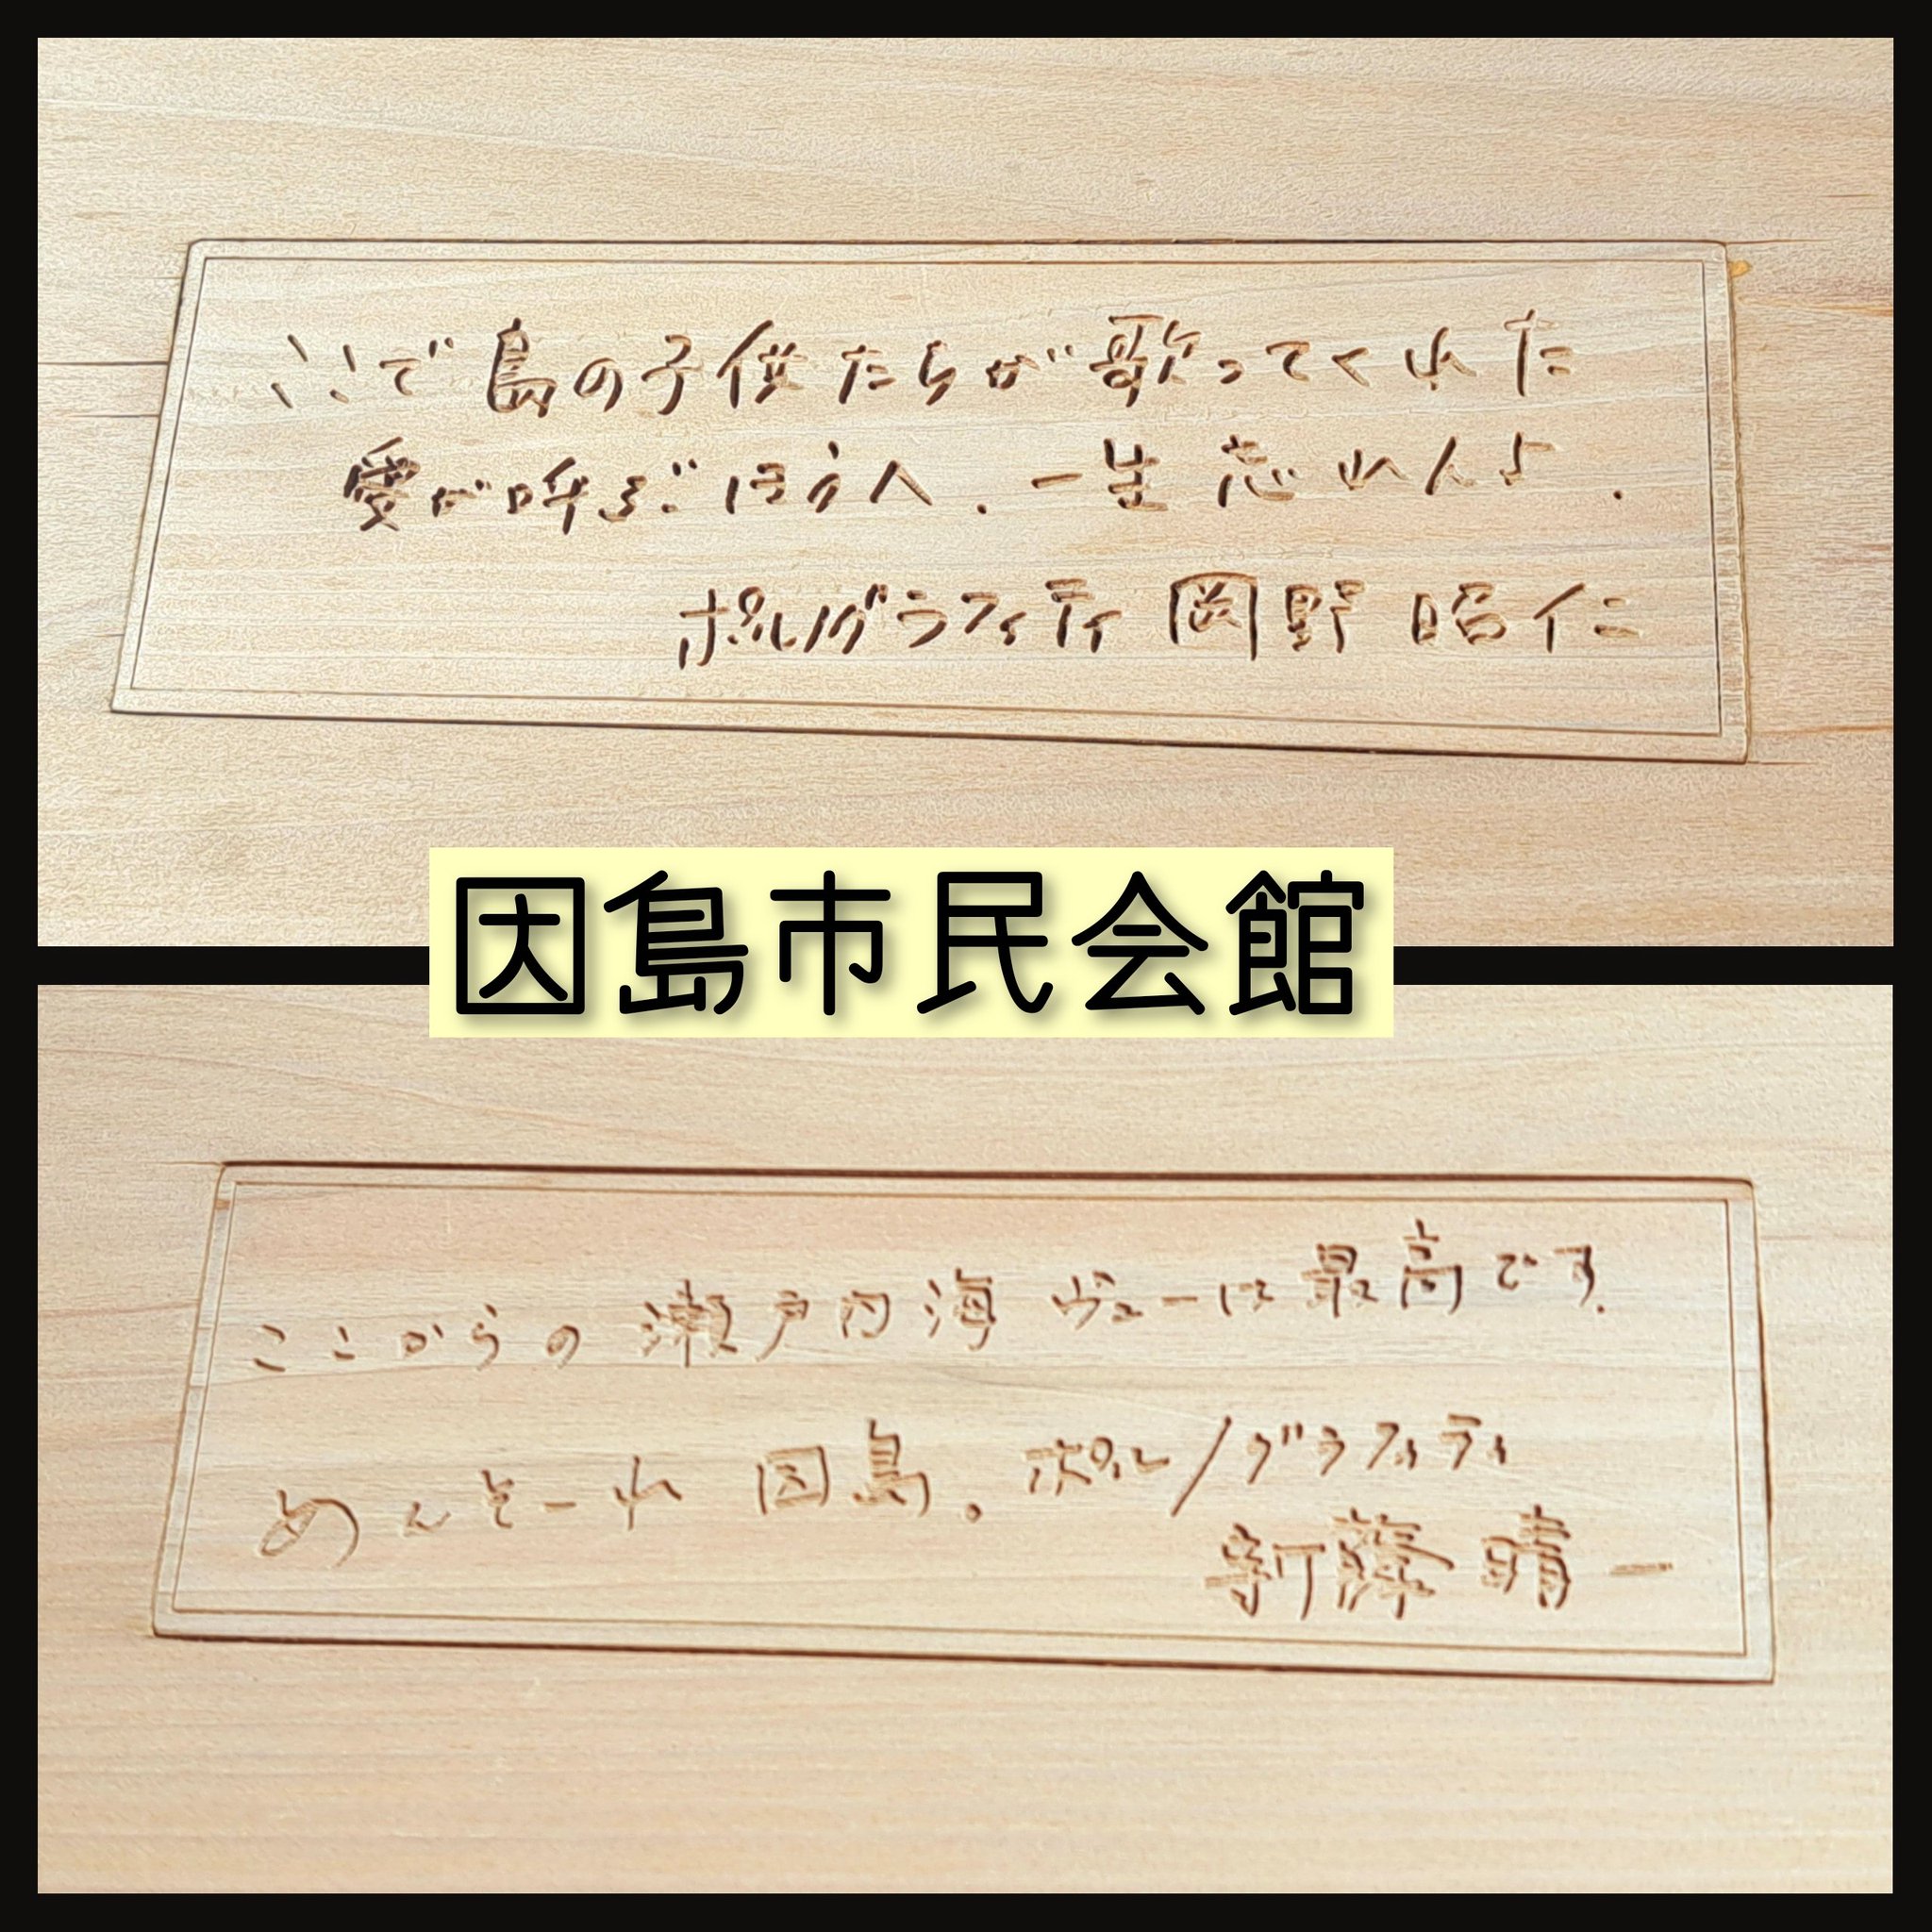 ここで島の子供たちが歌ってくれた
愛が呼ぶほうへ.一生忘れんよ.
ポルノグラフィティ 岡野昭仁
因島市民会館
ここからの瀬戸内海ヴューは最高です.
めんそーれ因島。ポルノグラフィティ
新藤晴一